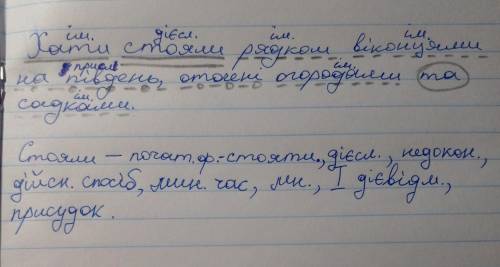 ім. дієсл. ім. ім.
Хати стояли рядком віконцями
прийм. ім. ім.
на південь, оточені огородами та
ім.
садками.
Стояли – почат. ф.-стояти, дієсл., недокон.,
дійсн. спосіб, мин. час, мн., I дієвідм.,
присудок.